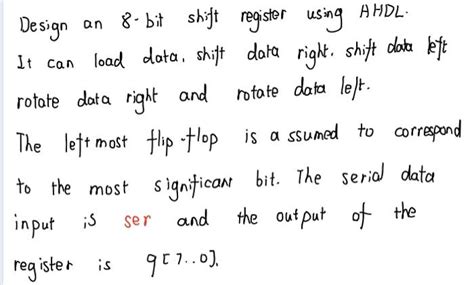 Design an 8-bit shift register using AHDL.
It can load data, shift data right, shift data left
rotate data right and rotate data left.
The leftmost flip-flop is assumed to correspond
to the most significan bit. The serial data
input is ser and the output of the
register is q[7..0].